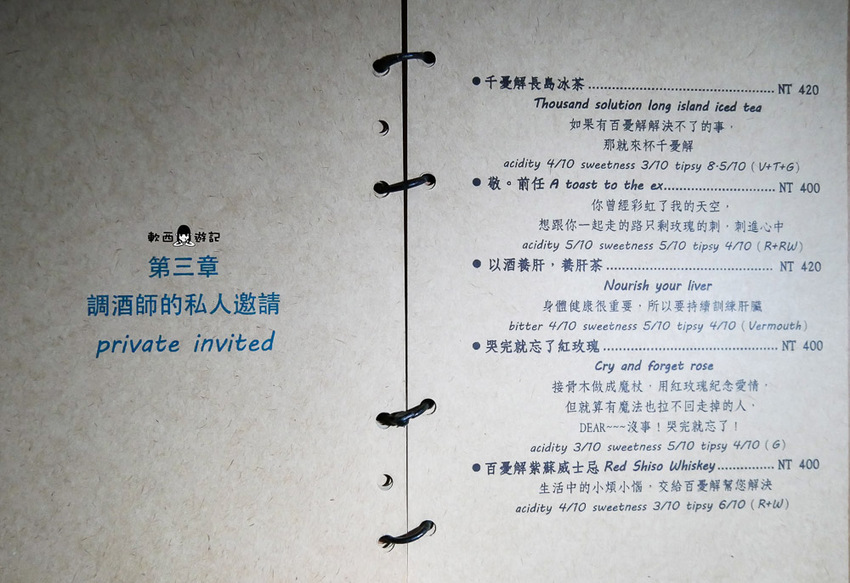 軟西遊記
第三章
調酒師的私人邀請
private invited
●千憂解長島冰茶 NT 420
Thousand solution long island iced tea
如果有百憂解解決不了的事，
那就來杯千憂解
acidity 4/10 sweetness 3/10 tipsy 8.5/10 (V+T+G)
●敬。前任 A toast to the ex NT 400
你曾經彩虹了我的天空，
想跟你一起走的路只剩玫瑰的刺，刺進心中
acidity 5/10 sweetness 5/10 tipsy 4/10 (R+RW)
●以酒養肝，養肝茶 NT 420
Nourish your liver
身體健康很重要，所以要持續訓練肝臟
bitter 4/10 sweetness 5/10 tipsy 4/10 (Vermouth)
●哭完就忘了紅玫瑰 NT 400
Cry and forget rose
接骨木做成魔杖，用紅玫瑰紀念愛情，
但就算有魔法也拉不回走掉的人，
DEAR~~~沒事！哭完就忘了！
acidity 3/10 sweetness 5/10 tipsy 4/10 (G)
●百憂解紫蘇威士忌 Red Shiso Whiskey NT 400
生活中的小煩小惱，交給百憂解幫您解決
acidity 4/10 sweetness 3/10 tipsy 6/10 (R+W)